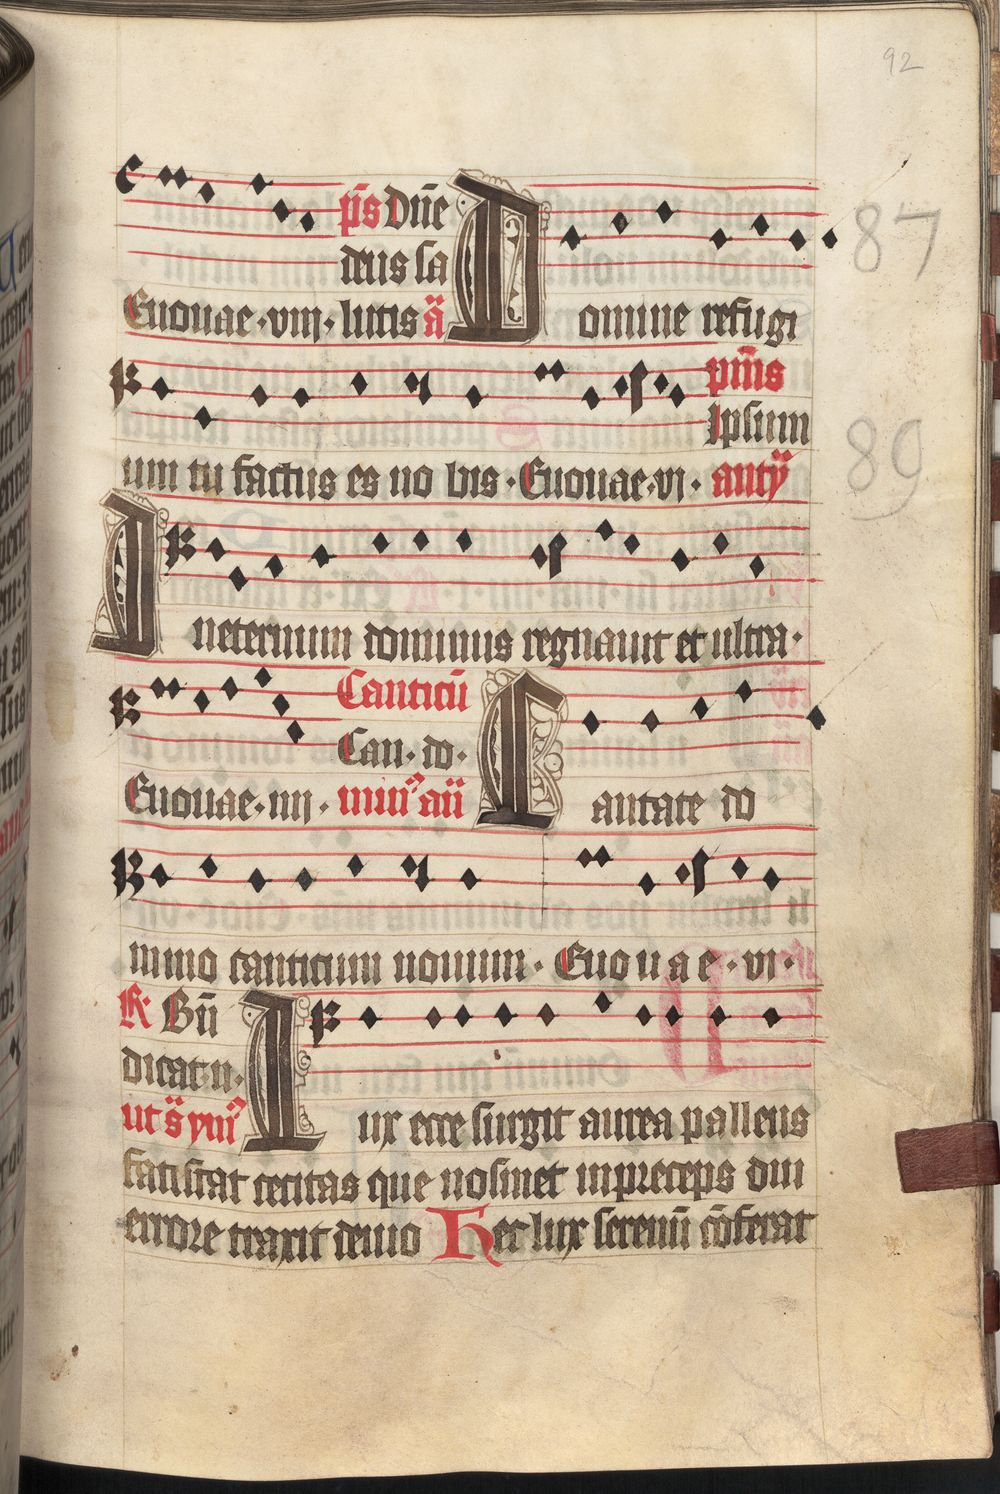 92
p̄s Dn̄e
deus sa
87
Euouae · viii · lutis ā Domine refugi
pm̄s
Ipsum
89
um tu factus es no bis · Euouae · vi · anty
Ineternum dominus regnauit et ultra ·
Canticū
Can · do ·
Euouae · iiii · Cantate do
mino canticum nouum · Euouae · vi ·
R̄ Bn̄
dicat · n ·
ut s̄ ym̄ Lux ecce surgit aurea pallens
fatiscat cecitas que nosmet inpreceps diu
errore traxit deuio Hec lux serenū cōferat